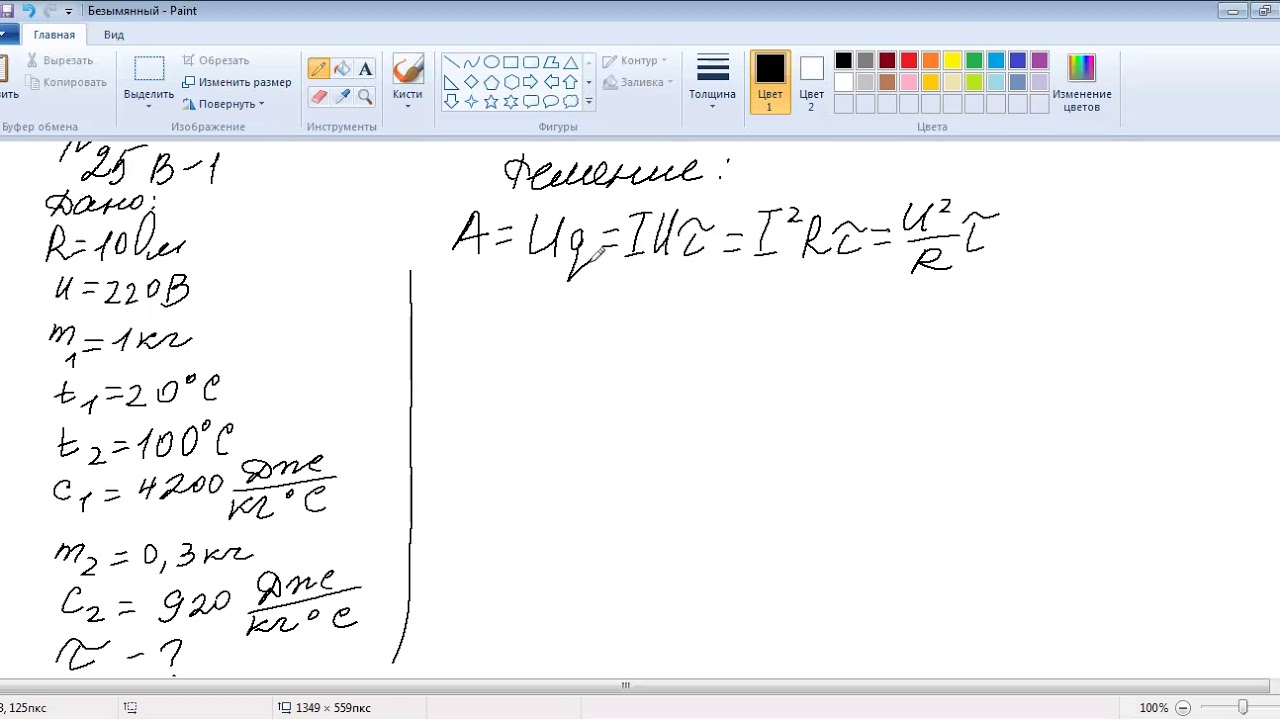 Безымянный - Paint
Главная Вид
Вырезать
Копировать
Буфер обмена
Выделить
Обрезать
Изменить размер
Повернуть
Изображение
A
Инструменты
Кисти
Контур
Заливка
Фигуры
Толщина
Цвет 1
Цвет 2
Изменение цветов
Цвета
25 В-1
Дано:
R=10Ом
U=220В
m₁=1кг
t₁=20°C
t₂=100°C
c₁=4200 Дж/кг°C
m₂=0,3кг
C₂=920 Дж/кг°C
τ-?
Решение:
A=Uq=IUτ=I²Rτ=U²/R τ
125пкс
1349 × 559пкс
100%